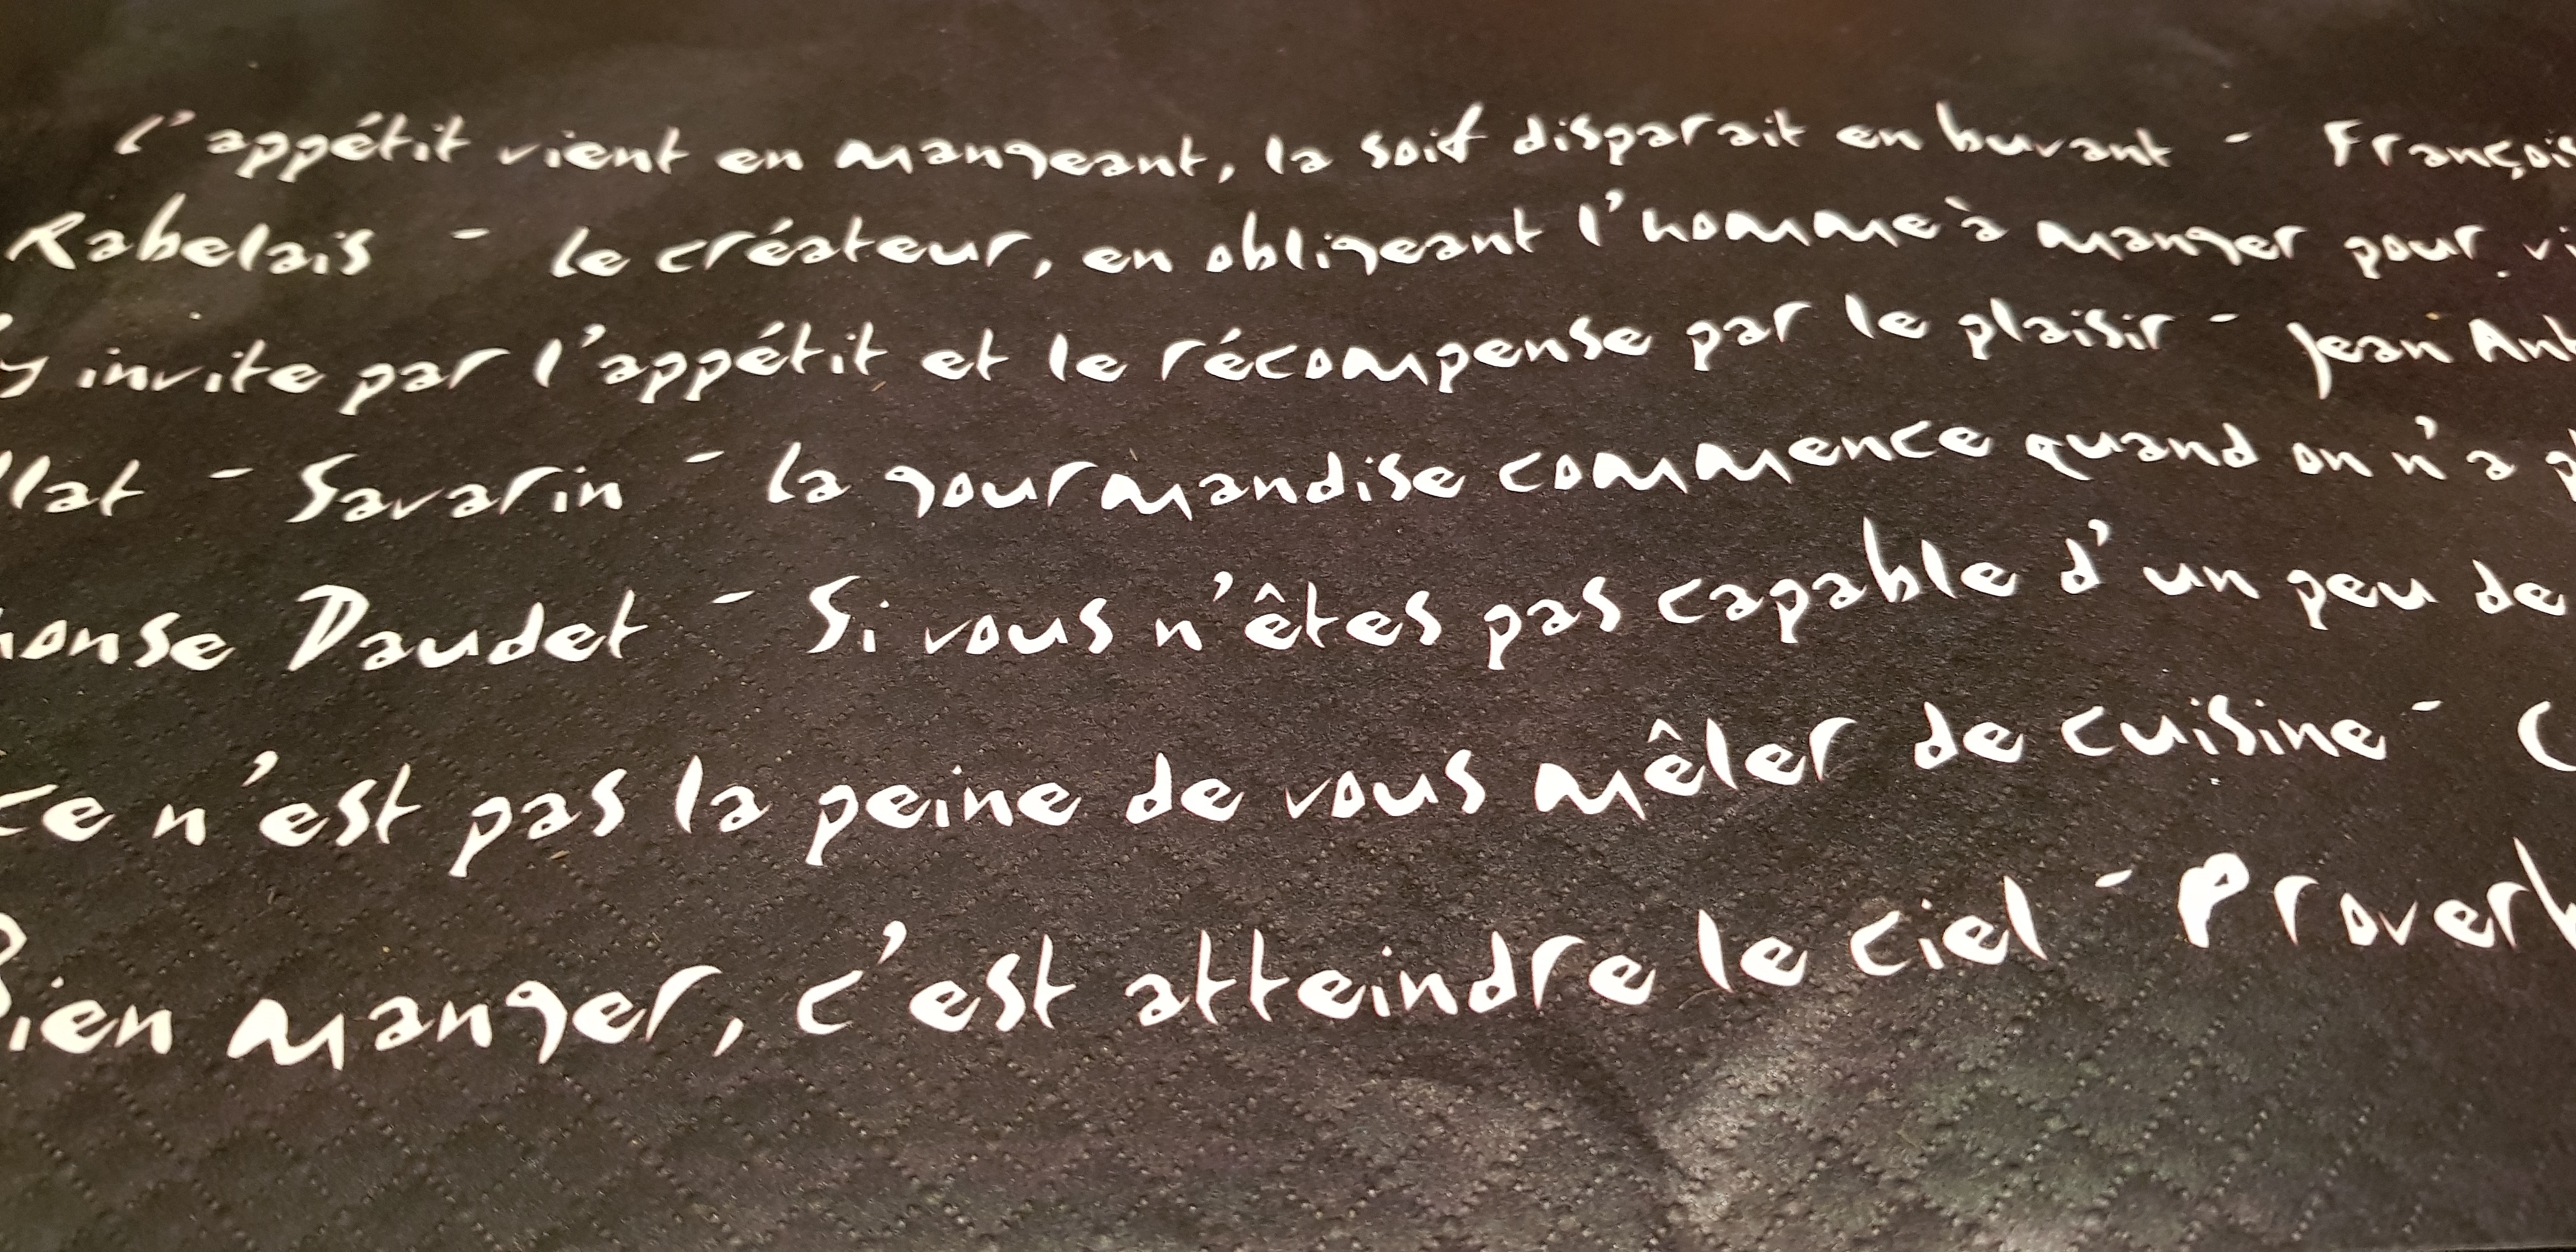 L'appétit vient en mangeant, la soif disparait en buvant - François
Rabelais - Le créateur, en obligeant l'homme à manger pour vi
y invite par l'appétit et le récompense par le plaisir - Jean Ant
llat - Savarin - La gourmandise commence quand on n'a p
honse Daudet - Si vous n'êtes pas capable d'un peu de
ce n'est pas la peine de vous mêler de cuisine - C
Bien manger, c'est atteindre le ciel - Proverb